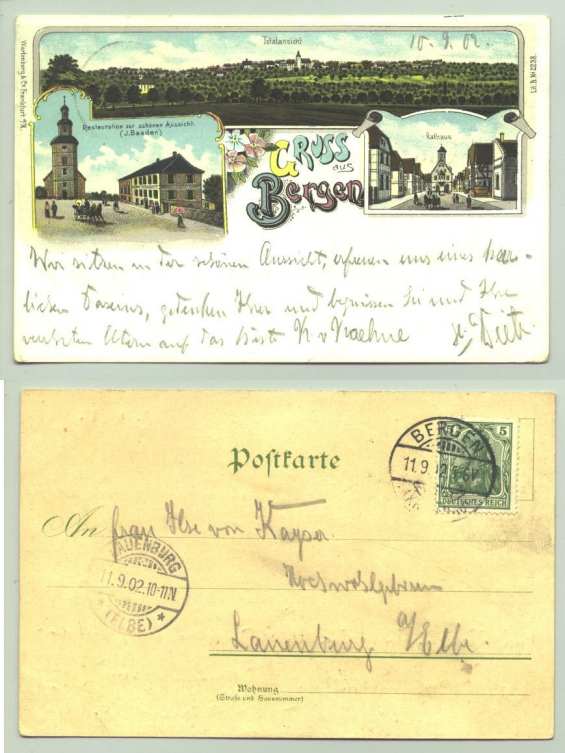 Totalansicht
10. 9. 02.
Wurtemberg & Co. Frankfurt a/M.
Lit. A. No 2238.
Restauration zur schönen Aussicht.
(J. Baaden)
Rathaus
Gruss
aus
Bergen
Wir sitzen in der schönen Aussicht, erfreuen uns eines herr-
lichen Daseins, gedenken Ihrer und begrüssen Sie und Ihre
verehrten Eltern auf das Beste
Postkarte
BERGEN
11.9.02
5
DEUTSCHES REICH
An Frau Ilse von Kayser
Hochwohlgeboren
LAUENBURG
11.9.02.10-11N.
* (ELBE) *
Lauenburg a/Elbe.
Wohnung
(Straße und Hausnummer)